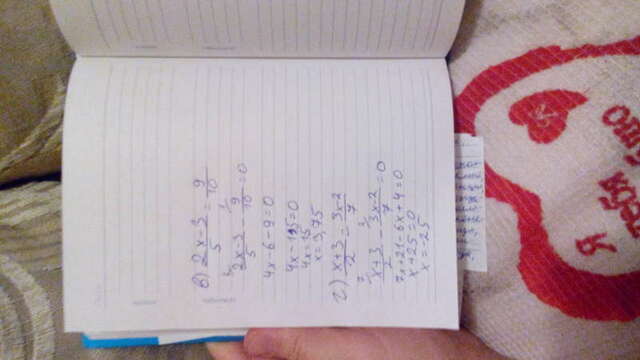 в) 2x-3/5 = 9/10
2x-3/5 - 9/10 = 0
4x-6-9=0
4x-15=0
4x=15
x=3,75
г) x+3/2 = 3x-2/7
x+3/2 - 3x-2/7 = 0
7x+21-6x+4=0
x+25=0
x=-25
Я
тебя